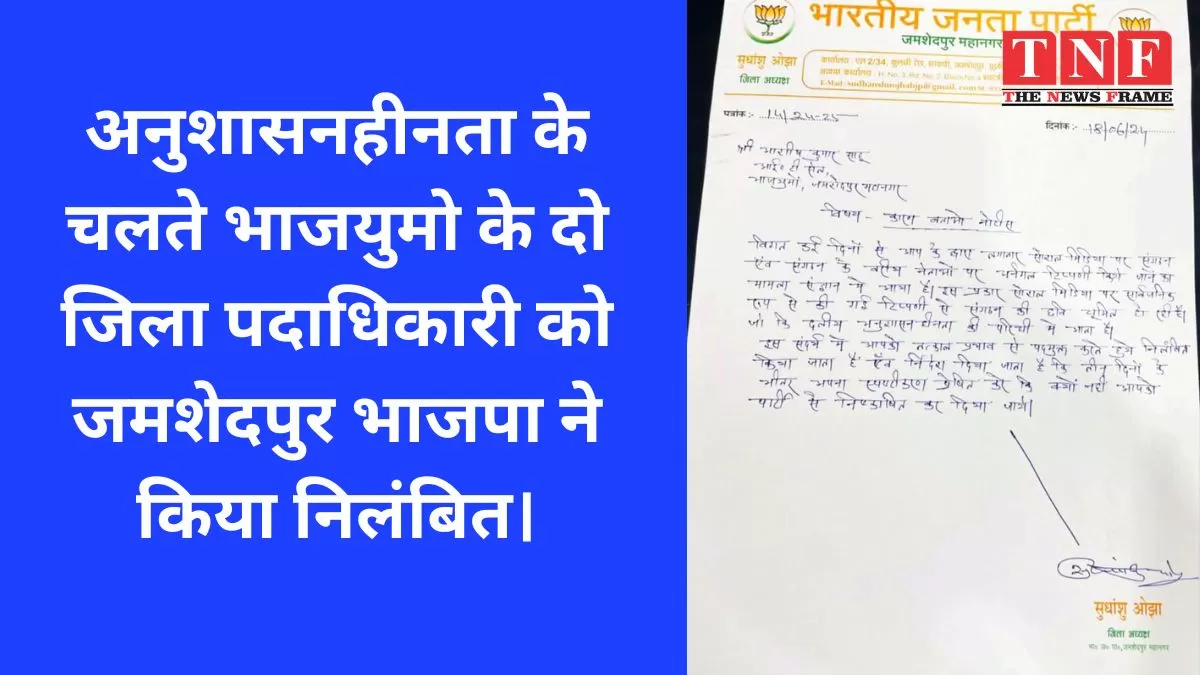 अनुशासनहीनता के
चलते भाजयुमो के दो
जिला पदाधिकारी को
जमशेदपुर भाजपा ने
किया निलंबित।
भारतीय जनता पार्टी
जमशेदपुर महानगर
TNF
THE NEWS FRAME
सुधांशु ओझा
जिला अध्यक्ष
पत्रांक :- 14/24-25
दिनांक :- 18/06/24
श्री कुमार साहू
आई० टी सेल,
भाजयुमो, जमशेदपुर महानगर
विषय - कारण बताओ नोटिस
विगत कई दिनों से आप के द्वारा लगातार सोशल मिडिया पर संगठन
एंव संगठन के वरीय नेताओं पर अनर्गल टिप्पणी किये जाने का
मामला संज्ञान में आया है। इस प्रकार सोशल मिडिया पर सार्वजनिक
रूप से की गई टिप्पणी से संगठन की छवि धूमिल हो रही है।
जो कि दलीय अनुशासन हीनता की श्रेणी में आता है।
इस संदर्भ में आपको तत्काल प्रभाव से पदमुक्त करते हुये निलंबित
किया जाता है एंव निर्देश दिया जाता है कि तीन दिनों के
भीतर अपना स्पष्टीकरण प्रेषित करें कि क्यों नहीं आपको
पार्टी से निष्काषित कर दिया जाये।
सुधांशु ओझा
जिला अध्यक्ष
भा० ज० पा०, जमशेदपुर महानगर